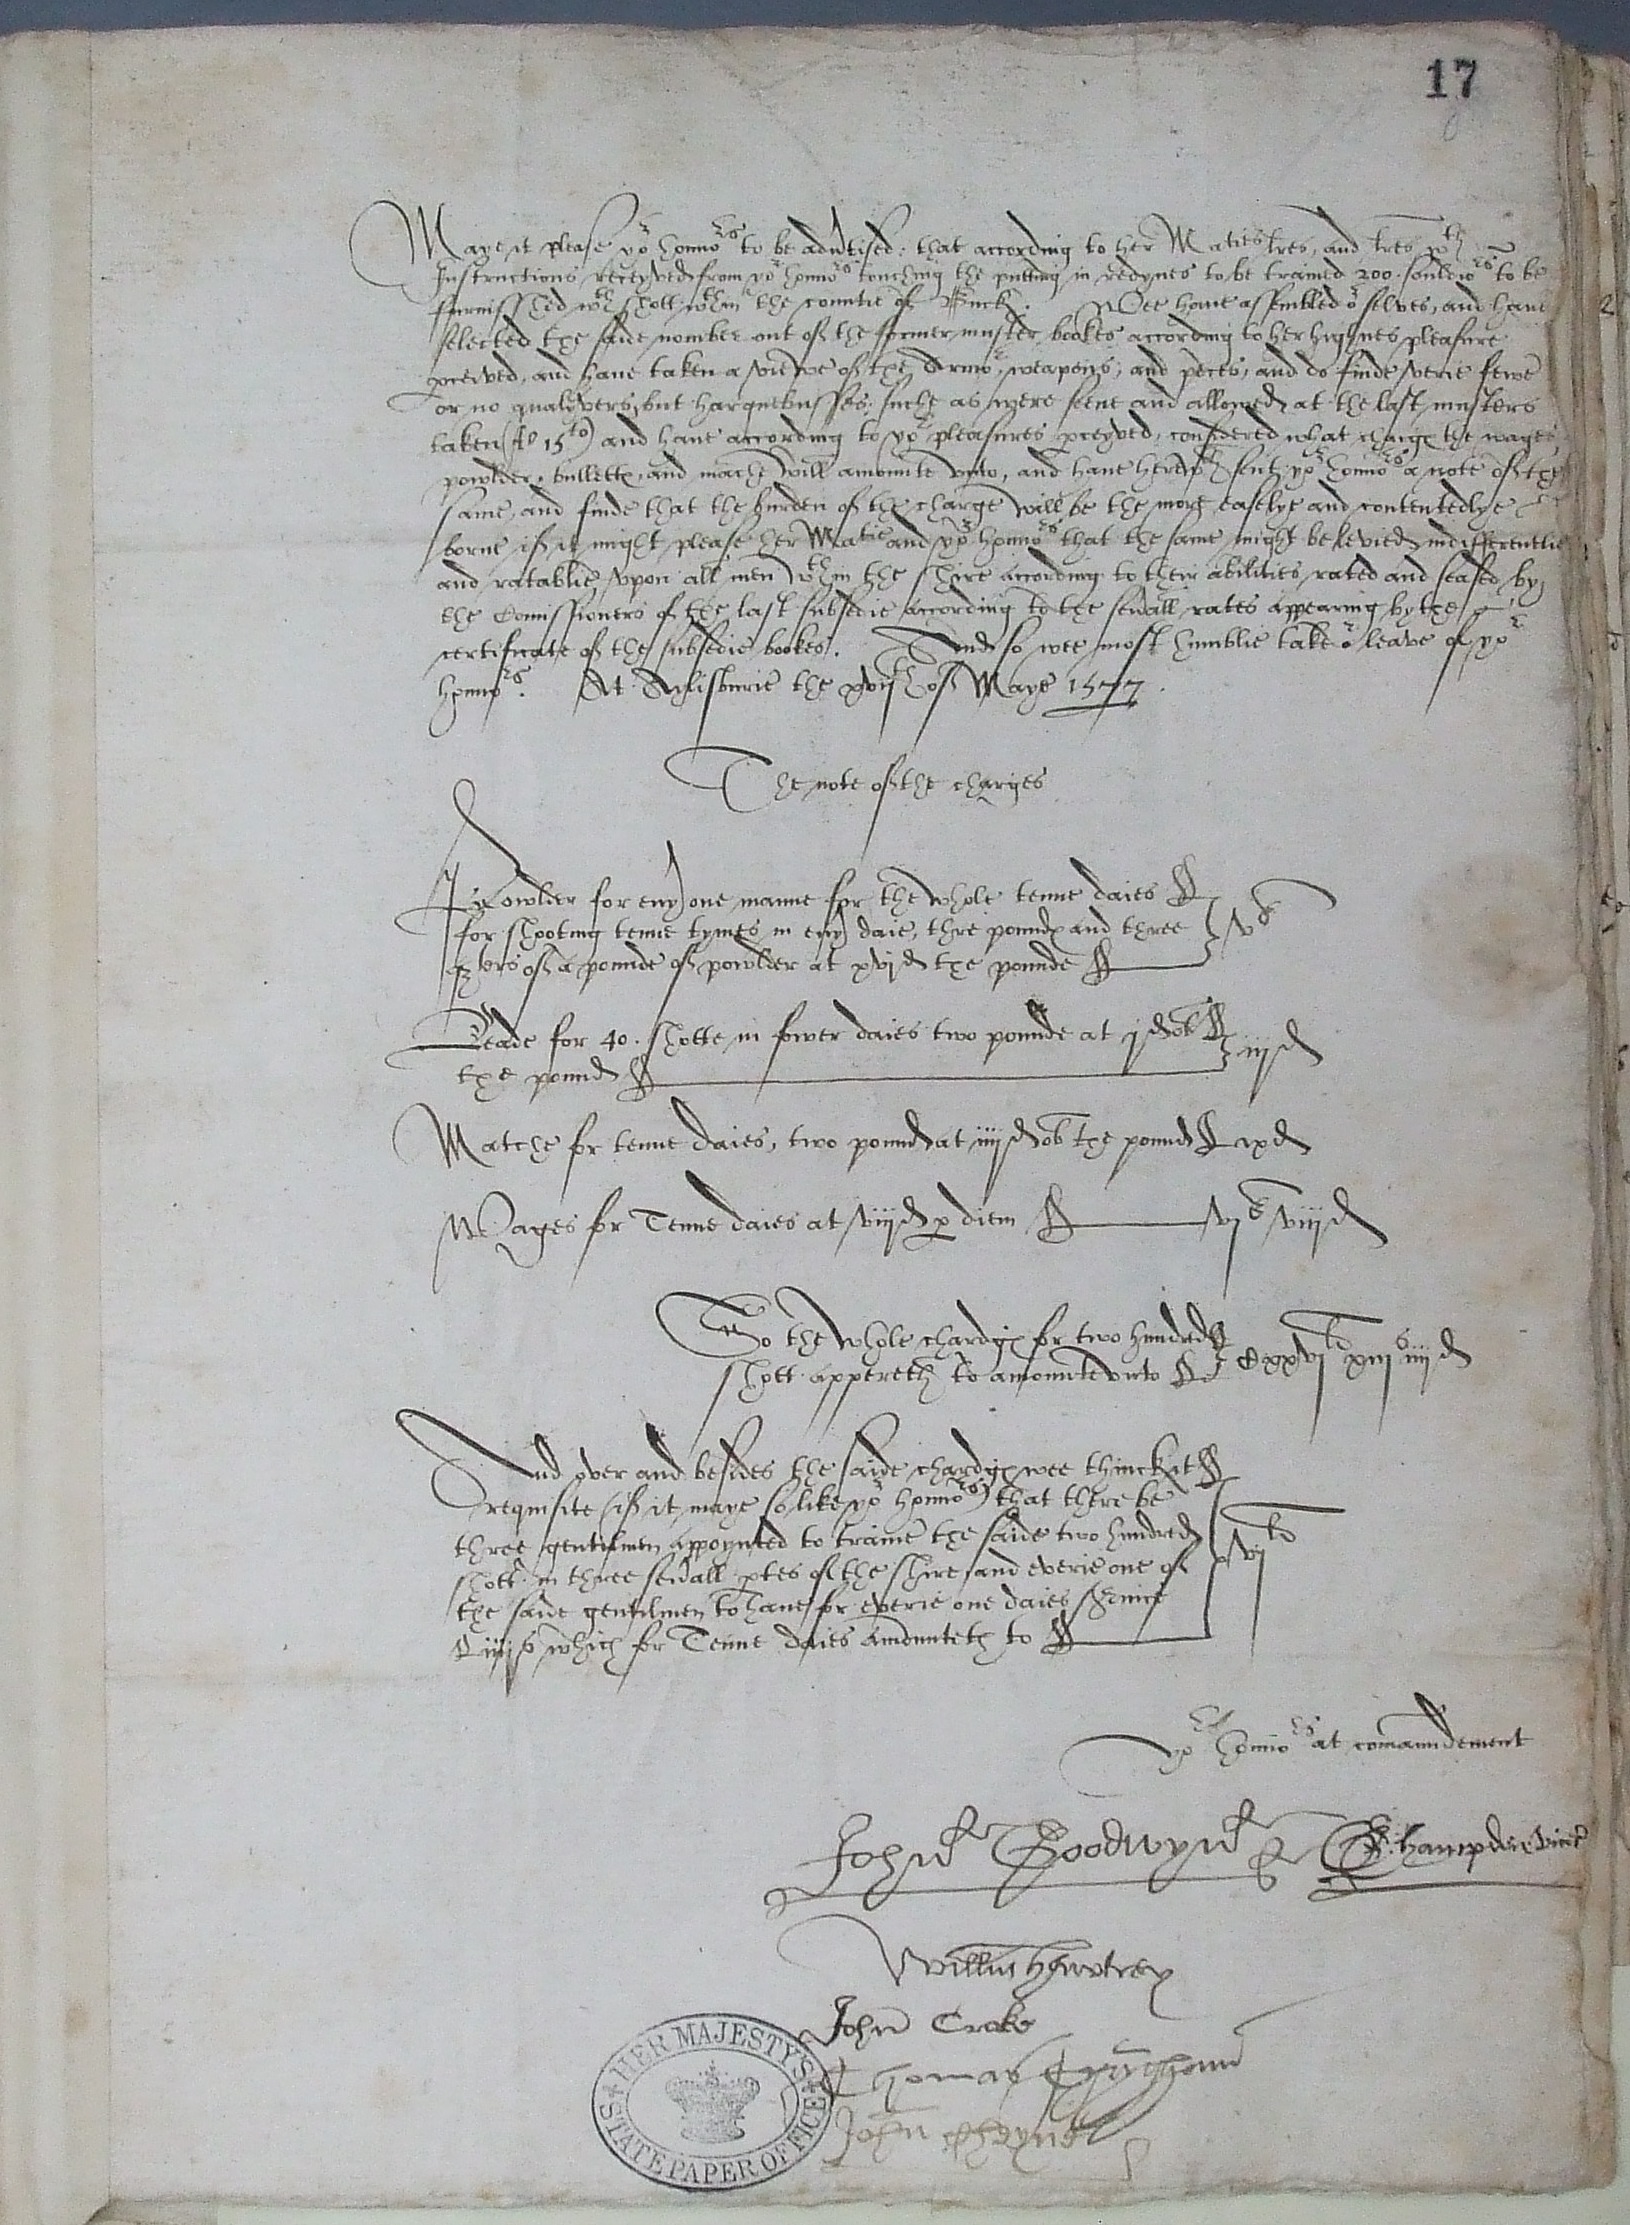 17
Maye it please yor honnors to be advtised: that according to her Maties lres, and lres wth
Instructions receyved from yor honnors touching the putting in redynes to be trained 200. souldiors to be
furnisshed wth shott wthin the countie of Buck. Wee have assembled or selves, and have
selected the saide nomber out of the former muster bookes according to her highnes pleasure
pceived, and have taken a viewe of the Armor, weapons, and peces, and do finde verie fewe
or no qualyvers, but harquebusses. suche as were seene and allowed at the last musters
taken (Ao 15to) and have according to yor pleasures pceyved, considered what charge the wages
powlder, bullette, and mache will amounte unto, and have herewth sent yor honnors a note of the
same, and finde that the burden of the charge will be the more easelye and contentedlye
borne if it might please her Matie and yor honnors that the same might be levied indifferentlie
and ratablie vpon all men wthin the shire according to their abilities rated and seased by
the Comissioners of the last subsedie according to the sevall rates appearing by the
certificate of the subsedie bookes. And so wee most humblie take or leave of yor
honnors. At Aylisburie the xvijth of Maye 1577.
The note of the charges
Powlder for evy one manne for the whole tenne daies
for shooting tenne tymes in evy daie, thre pounde and three } vs
qters of a pounde of powlder at xvjd the pounde
Leade for 40. shotte in fower daies two pounde at jd ob } iijd
the pound
Matche for tenne daies, two pound at iiijd ob the pound ixd
Wages for Tenne daies at viijd p diem vjs viijd
So the whole chardge for two hundred } Cxxvjli xiijs iiijd
shott appereth to amounte vnto
And over and besides the saide chardge wee thinck it
requisite (if it maye so like yor honnors) that there be
three gentilmen appoynted to traine the saide two hundred } vjli
shott in three sevall ptes of the shire and everie one of
the saide gentilmen to have for everie one daies service
iiijs which for Tenne daies amounteth to
yor honnors at comaundement
John Goodwyn G. Hampden
Willm Hawtrey
John Croke
Thomas
John Cheyne
HER MAJESTY'S STATE PAPER OFFICE